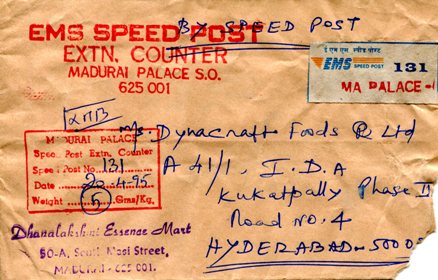 BY SPEED POST
EMS SPEED POST
EXTN. COUNTER
MADURAI PALACE S.O.
625 001
ई एम एस स्पीड पोस्ट
EMS SPEED POST 131
MA PALACE-
MADURAI PALACE
Speed Post Extn. Counter
Speed Post No. 131
Date 20.4.95
Weight 5 Gms/Kg.
M/s. Dynacraft Foods P. Ltd
A 41/1, I.D.A
Kukatpally Phase II
Road No. 4
HYDERABAD-5000
Dhanalakshmi Essense Mart
50-A, South Masi Street,
MADURAI - 625 001.